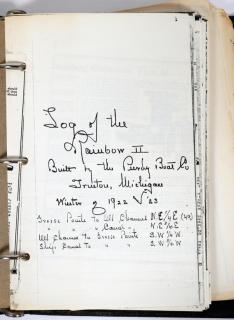 Log of the
Rainbow II
Built by the Purdy Boat Co
Trenton, Michigan
Winter of 1922 & 23
Grosse Pointe To Old Channel N.E ½ E (49)
" " " Canal - N.E ⅛ E
Old Channel To Grosse Pointe S.W ½ W
Ship Canal To " " S.W ⅛ W